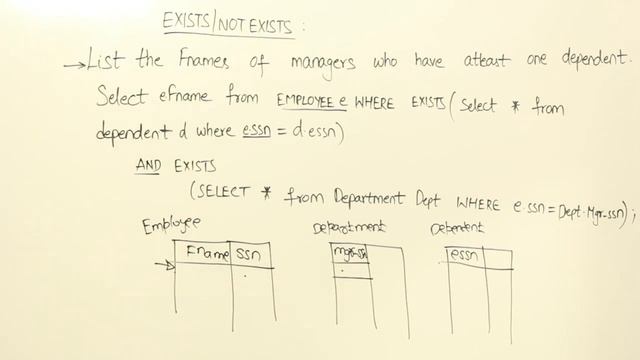 EXISTS/NOT EXISTS :
→List the Fnames of managers who have atleast one dependent.
Select eFname from EMPLOYEE e WHERE EXISTS( Select * from
dependent d where e.ssn = d.essn)
AND EXISTS
(SELECT * from Department Dept WHERE e.ssn = Dept.Mgr-ssn);
Employee Department Dependent
Fname ssn mgr-ssn essn